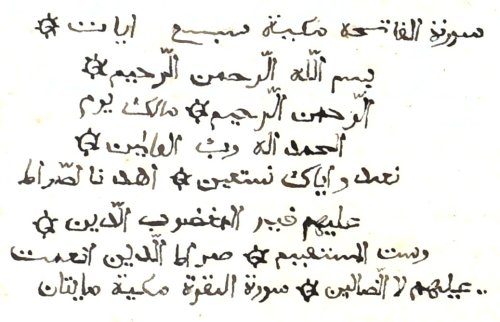 سورة الفاتحه مكية سبع ايات ۞
بسم اللّه الرّحمن الرّحيم ۞
الرّحمن الرّحيم ۞ مالك يوم
الحمد لله رب العالمين ۞
نعبد واياك نستعين ۞ اهدنا لصّراط
عليهم غير المغضوب الّدين ۞
المستقيم ۞ صراط الّذين انعمت
عليهم لا الّضالين ۞ سورة البقرة مكية مايتان